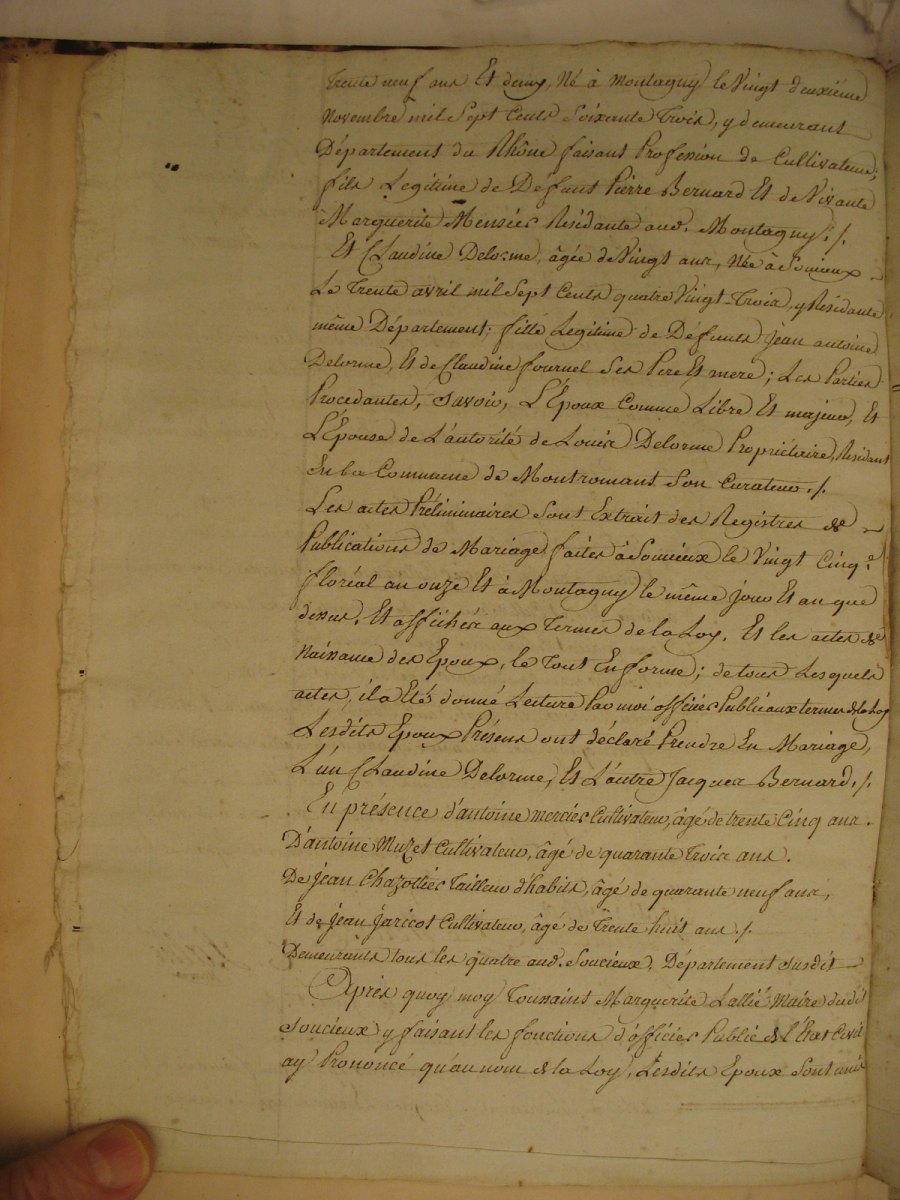 trente neuf ans Et demy, Né à Montagny le Vingt deuxiéme
Novembre mil Sept Cents Soixante Trois, y demeurant
Département du Rhône faisant Profession de Cultivateur;
fils Legitime de Défunt Pierre Bernard Et de Vivante
Marguerite Mensier Résidante aud. Montagny./.
Et Claudine Delorme, âgée de Vingt ans, Née à Soucieux
Le Trente avril mil Sept Cents quatre Vingt-Trois, y Résidante
même Département; fille Legitime de Défunts Jean antoine
Delorme, Et de Claudine fournel Ses Pere Et mere; Les Parties
Procedantes, Savoir, L'Époux Comme Libre Et majeur, Et
L'Épouse de L'autorité de Louis Delorme Propriétaire, Résidant
En la Commune de Montromant Son Curateur./.
Les actes Préliminaires Sont Extrait des Registres de
Publications de Mariage faites à Soucieux le Vingt Cinq.e
floréal an onze Et à Montagny le même jour Et an que
dessus, Et affichés aux Termes de la Loy, Et les actes de
Naissance des Epoux, le Tout En forme; de tous Lesquels
actes, il a Eté donné Lecture Par moi officier Public aux termes de la Loy
Lesdits Epoux Présens ont déclaré Prendre En Mariage,
L'un Claudine Delorme, Et L'autre Jacques Bernard./.
En présence d'antoine mercier Cultivateur, âgé de trente Cinq ans.
D'antoine Muzet Cultivateur, âgé de quarante Trois ans.
De jean Chazottier Tailleur d'habits, âgé de quarante neuf ans,
Et de jean jaricot Cultivateur, âgé de Trente huit ans./.
Demeurants tous les quatre aud. Soucieux, Département susdit
Après quoy moy Toussaint Marguerite Lallié Maire dudit
Soucieux y faisant les fonctions d'officier Public de l'État Civil
ay Prononcé qu'au nom de la Loy, Lesdits Epoux Sont unis